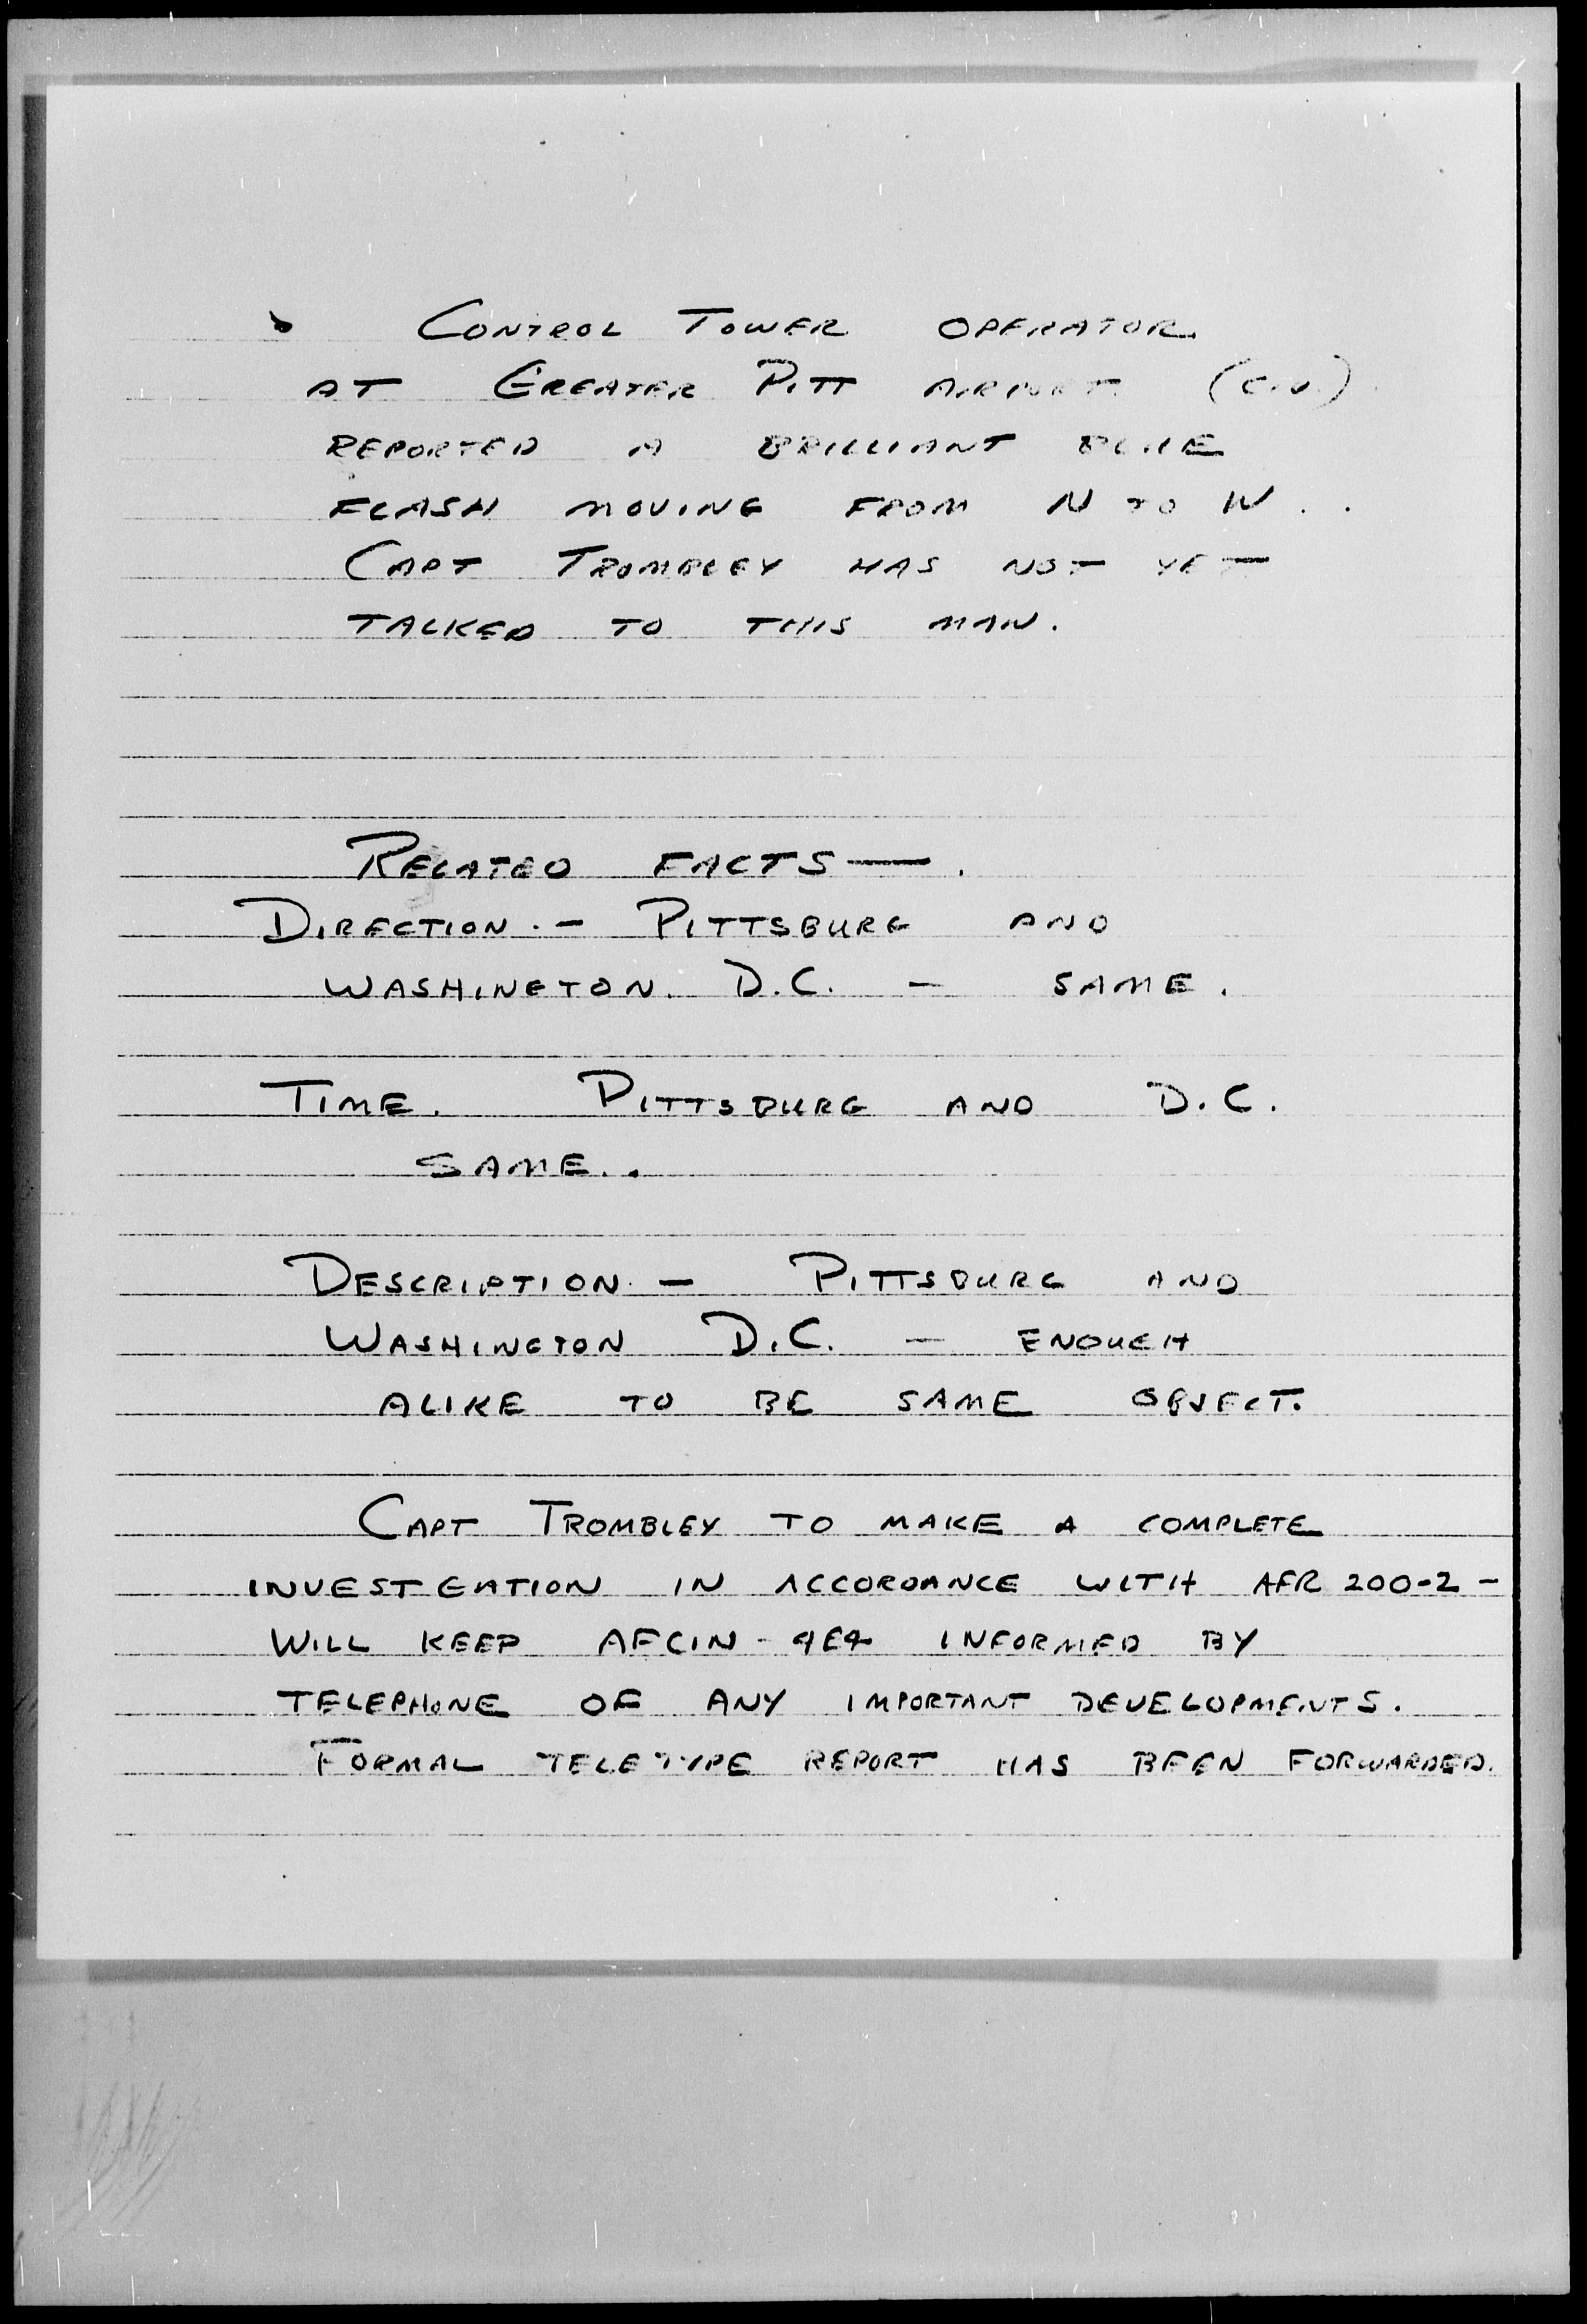 CONTROL TOWER OPERATOR
AT GREATER PITT AIRPORT (CIV)
REPORTED A BRILLIANT BLUE
FLASH MOVING FROM N TO W..
CAPT TROMBLEY HAS NOT YET
TALKED TO THIS MAN.
RELATED FACTS—.
DIRECTION.- PITTSBURG AND
WASHINGTON. D.C. - SAME.
TIME. PITTSBURG AND D.C.
SAME..
DESCRIPTION.- PITTSBURG AND
WASHINGTON D.C. - ENOUGH
ALIKE TO BE SAME OBJECT.
CAPT TROMBLEY TO MAKE A COMPLETE
INVESTGATION IN ACCORDANCE WITH AFR 200-2-
WILL KEEP AFCIN-4E4 INFORMED BY
TELEPHONE OF ANY IMPORTANT DEVELOPMENTS.
FORMAL TELETYPE REPORT HAS BEEN FORWARDED.